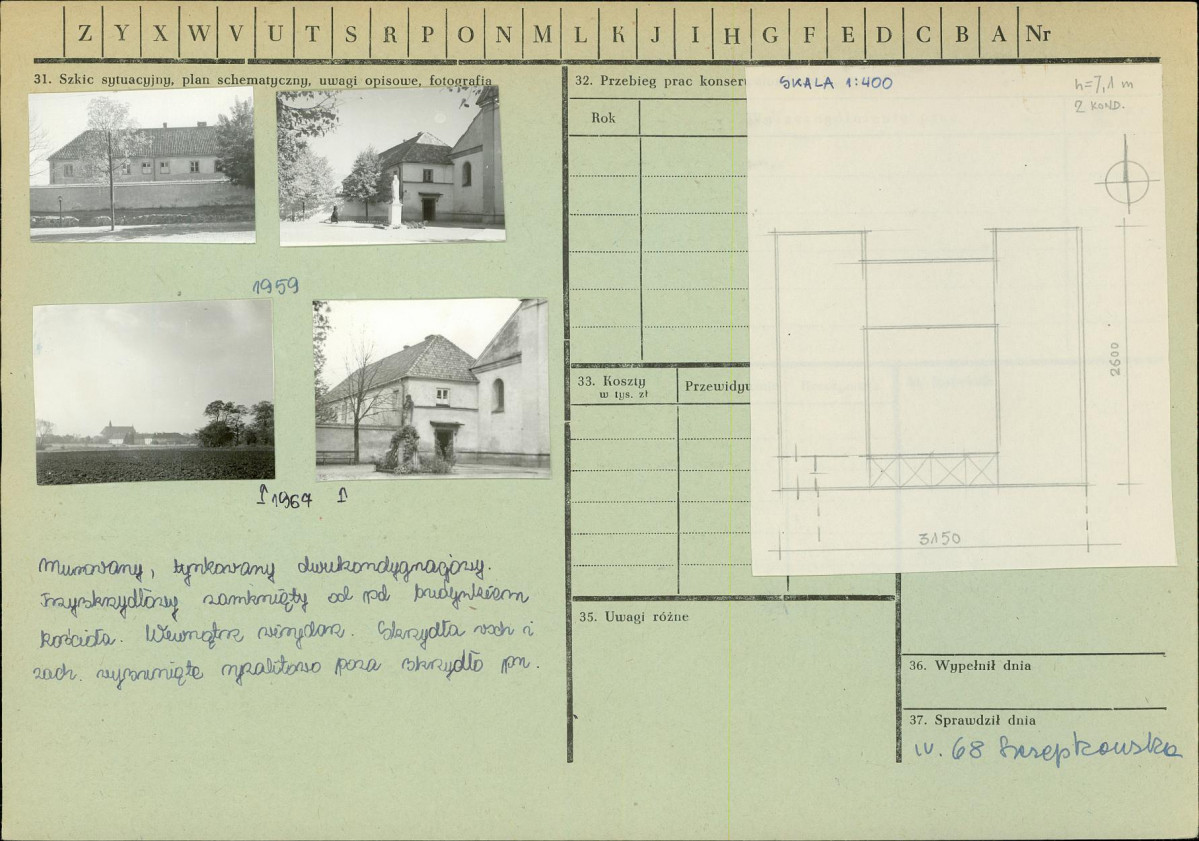 Z Y X W V U T S R P O N M L K J I H G F E D C B A Nr
31. Szkic sytuacyjny, plan schematyczny, uwagi opisowe, fotografia
1959
1967
Murowany, tynkowany dwukondygnacjowy.
Trzyskrzydłowy zamknięty od pd budynkiem
kościoła. Wewnątrz wirydarz. Skrzydła wsch i
zach. wysunięte ryzalitowo poza skrzydło pn.
32. Przebieg prac konser
Rok
33. Koszty
w tys. zł
Przewidyw
35. Uwagi różne
SKALA 1:400
h=7,1 m
2 KOND.
2600
3150
36. Wypełnił dnia
37. Sprawdził dnia
IV. 68